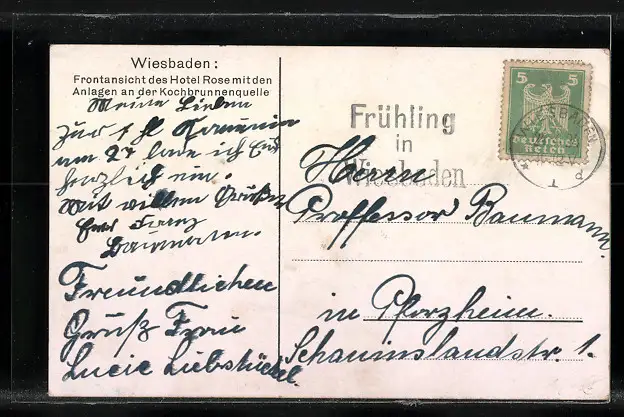 Wiesbaden:
Frontansicht des Hotel Rose mit den
Anlagen an der Kochbrunnenquelle
Meine Lieben
zur
am 27 lade ich Euch
herzlich ein.
Mit vielen Grüßen
Euer Franz
Baumann.
Freundlichen
Gruß Frau
Lucie Liebstückel.
Frühling
in
Wiesbaden
5 5
Deutsches
Reich
Herrn
Proffessor Baumann.
in Pforzheim.
Schauinslandstr. 1.